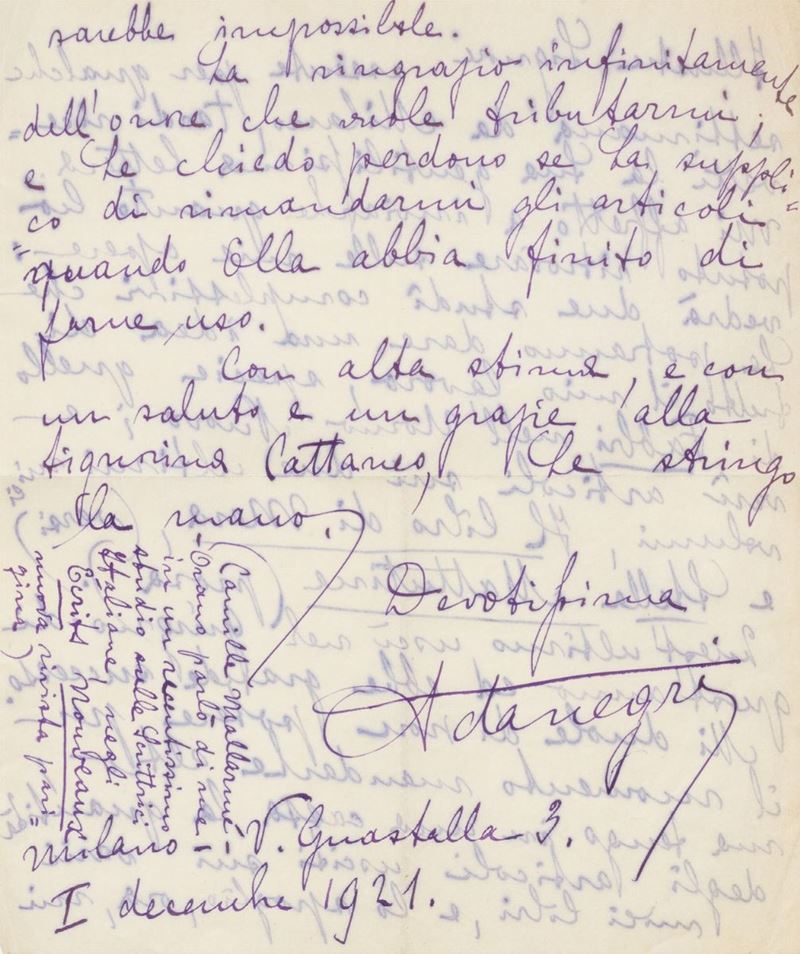 sarebbe impossibile.
La ringrazio infinitamente
dell'onore che vuole tributarmi;
e Le chiedo perdono se La suppli=
=co di rimandarmi gli articoli
quando Ella abbia finito di
farne uso.
Con alta stima, e con
un saluto e un grazie alla
Signorina Cattaneo, Le stringo
la mano.
Devotissima
Ada Negri
Milano - V. Guastalla 3.
I decembre 1921.
(Camille Mallarmé -
- Orano parlò di me -
in un recentissimo
studio sulle Scrittrici
Italiane, negli
Écrits Nouveaux
nuova rivista pari=
gina)